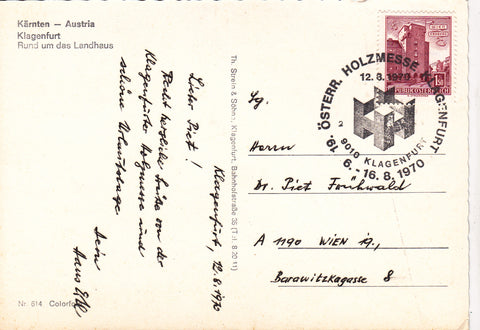 Kärnten — Austria
Klagenfurt
Rund um das Landhaus
Klagenfurt, 12.8.1970
Lieber Piet!
Recht herzliche Grüße von der
Klagenfurter Holzmesse und
schöne Urlaubstage
Dein
Hans
Th. Strein & Söhne, Klagenfurt, Bahnhofstraße 35
Nr. 514
REPUBLIK ÖSTERREICH
19. ÖSTERR. HOLZMESSE KLAGENFURT
12.8.1970
2
9010 KLAGENFURT
6.-16.8.1970
Sg.
Herrn
Dr. Piet Frühwald
A 1190 WIEN 19.,
Barawitzkagasse 8